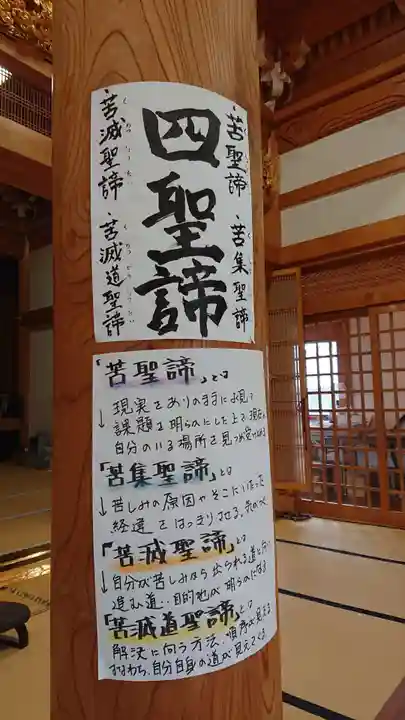 苦聖諦
苦集聖諦
四聖諦
苦滅聖諦
苦滅道聖諦
「苦聖諦」とは
↓現実をありのままによく見て
課題を明らかにした上で現在の
自分のいる場所を見つめ受け止める
「苦集聖諦」とは
↓苦しみの原因やそこにいたった
経過をはっきりさせる。
「苦滅聖諦」とは
↓自分が苦しみから出られる道と向い
進む道‥目的地が明らかになる
「苦滅道聖諦」とは
解決に向う方法、順序が見える
すなわち、自分自身の道が見えてくる